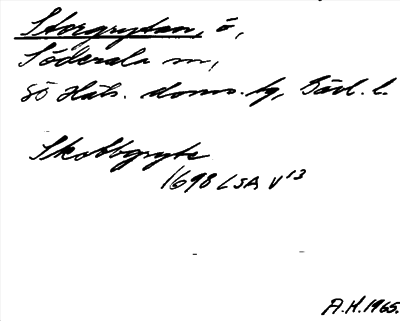 Storgrytan, ö,
Söderala sn,
Sö Häls. doms. hg, Gävl. l.
Skobbgryta
1698 LSA V 13
A.H. 1965.